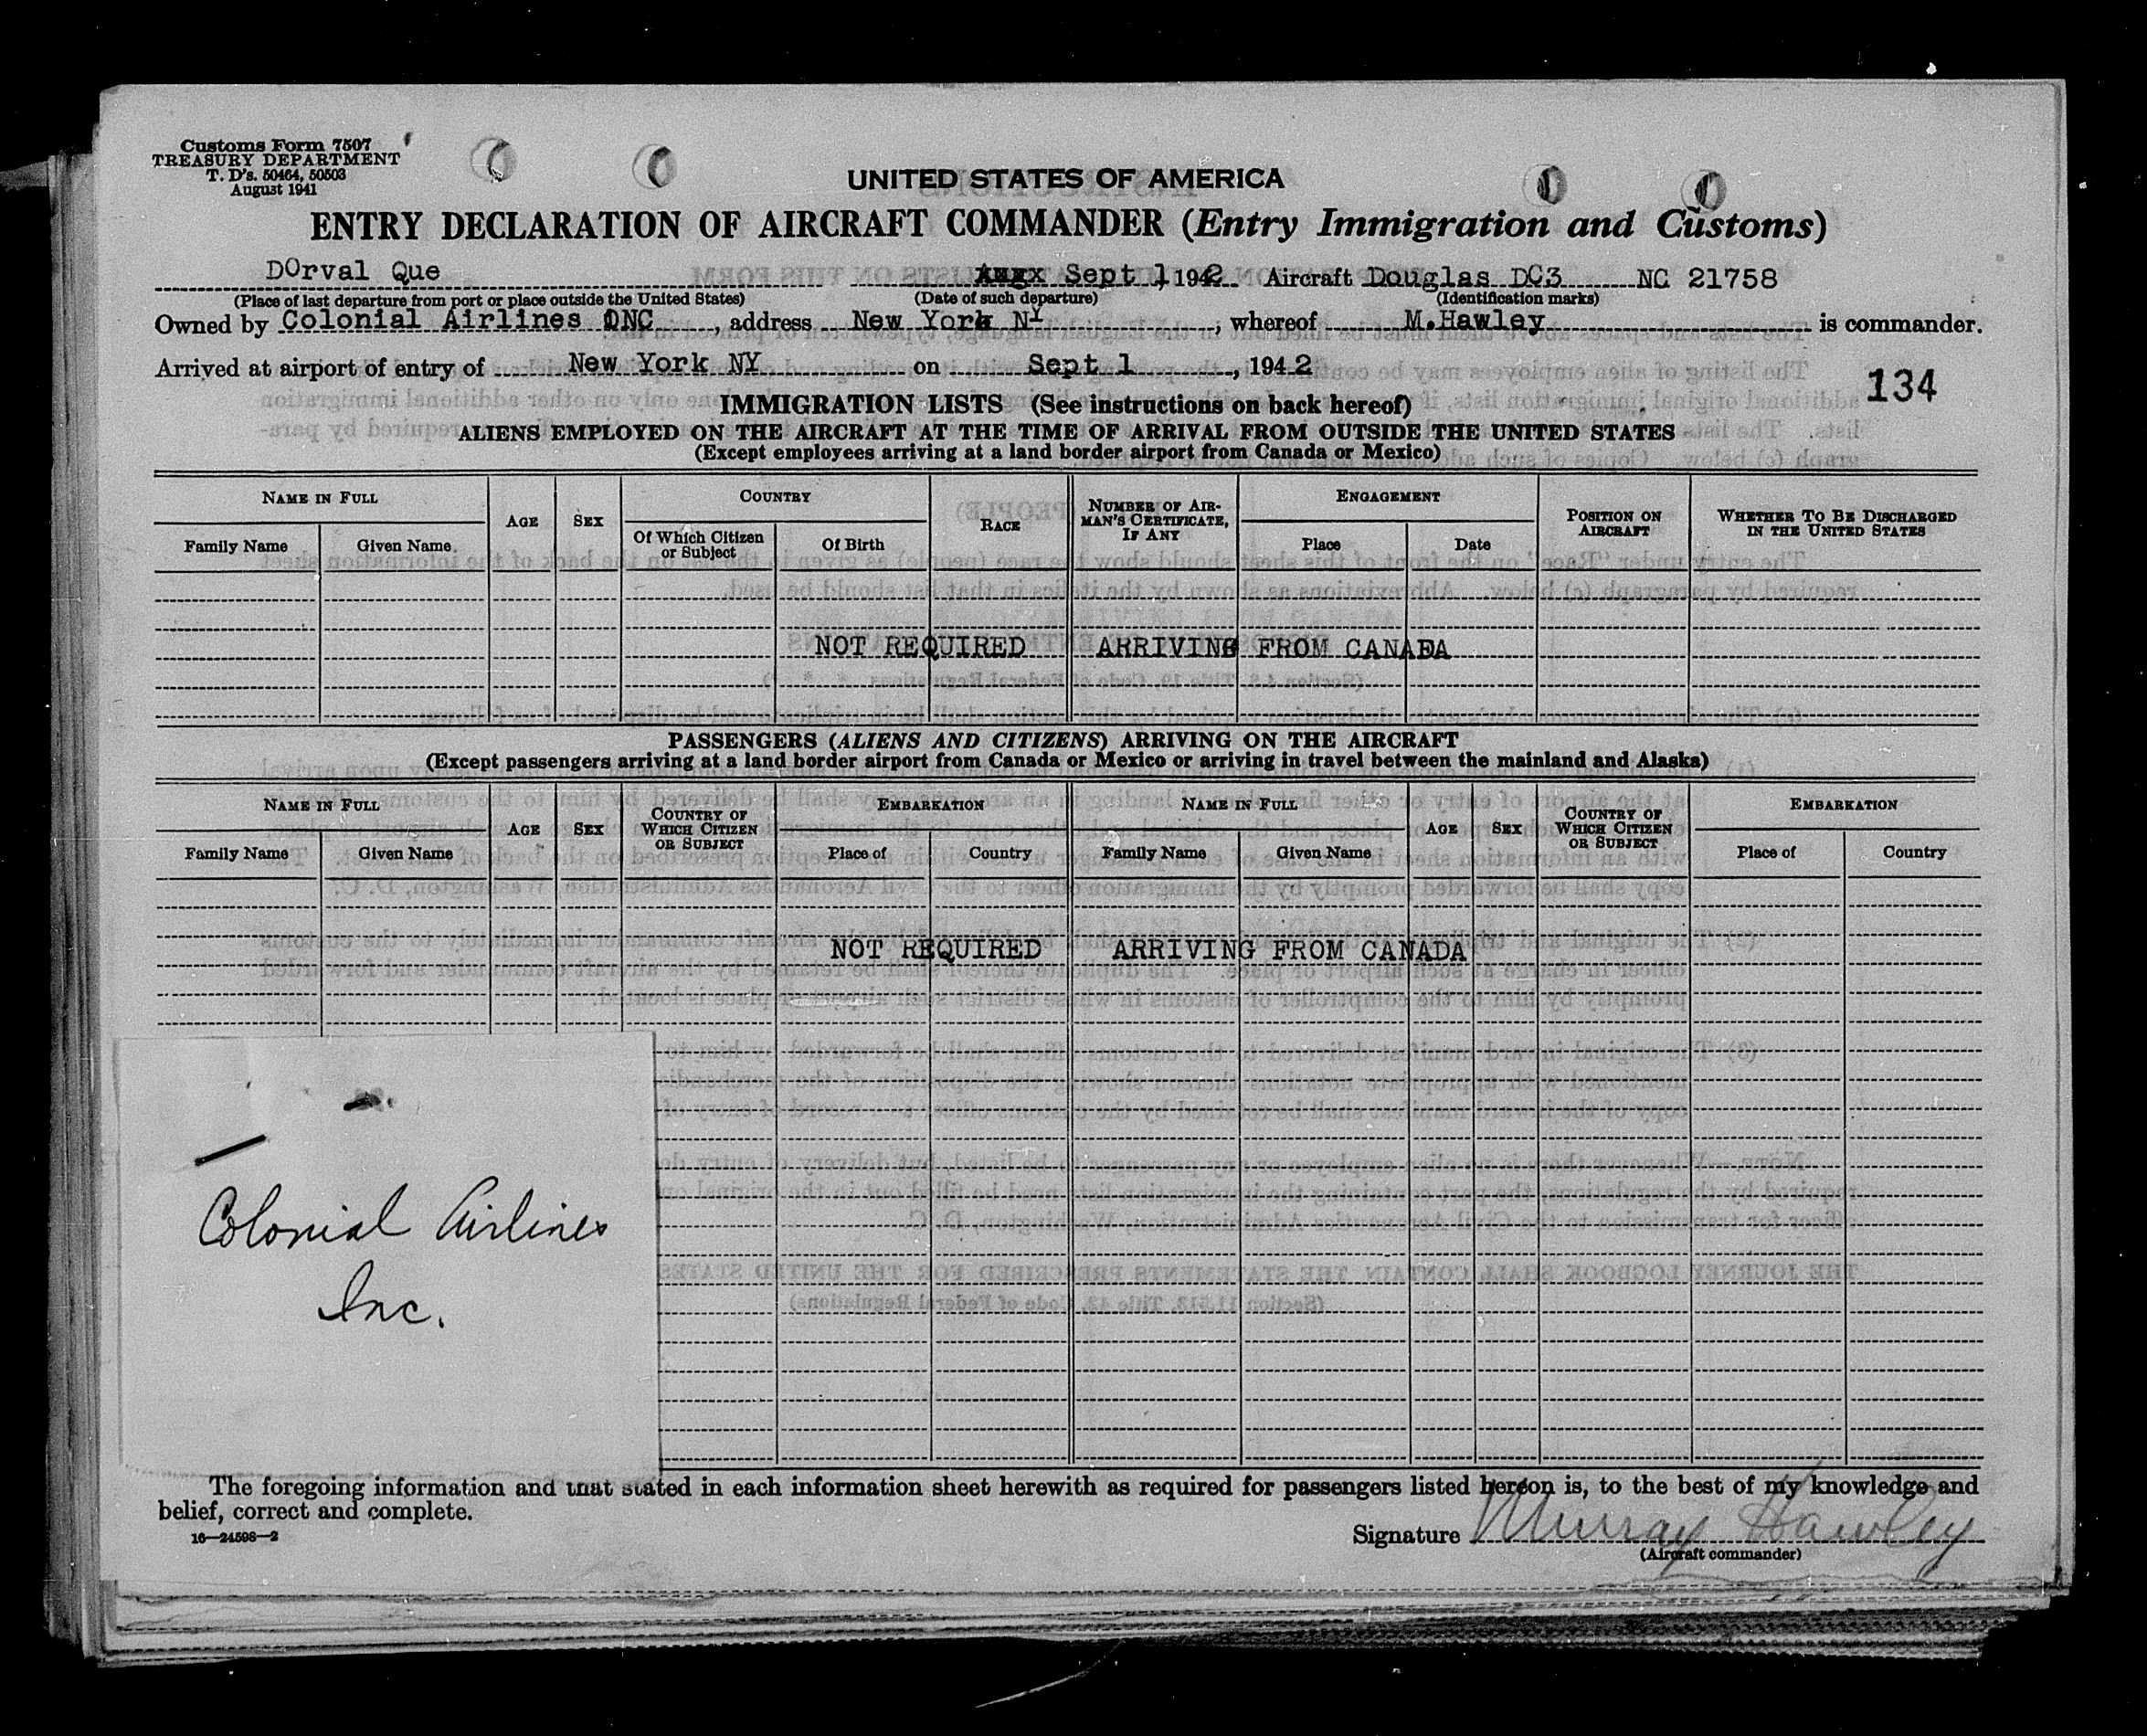 Customs Form 7507
TREASURY DEPARTMENT
T. D's. 50464, 50503
August 1941
UNITED STATES OF AMERICA
ENTRY DECLARATION OF AIRCRAFT COMMANDER (Entry Immigration and Customs)
DOrval Que Sept 1, 1942 Aircraft Douglas DC3 NC 21758
(Place of last departure from port or place outside the United States) (Date of such departure) (Identification marks)
Owned by Colonial Airlines INC, address New York NY, whereof M.Hawley is commander.
Arrived at airport of entry of New York NY on Sept 1, 1942
134
IMMIGRATION LISTS (See instructions on back hereof)
ALIENS EMPLOYED ON THE AIRCRAFT AT THE TIME OF ARRIVAL FROM OUTSIDE THE UNITED STATES
(Except employees arriving at a land border airport from Canada or Mexico)
NAME IN FULL AGE SEX COUNTRY RACE NUMBER OF AIRMAN'S CERTIFICATE, IF ANY ENGAGEMENT POSITION ON AIRCRAFT WHETHER TO BE DISCHARGED IN THE UNITED STATES
Family Name Given Name Of Which Citizen or Subject Of Birth Place Date
NOT REQUIRED ARRIVING FROM CANADA
PASSENGERS (ALIENS AND CITIZENS) ARRIVING ON THE AIRCRAFT
(Except passengers arriving at a land border airport from Canada or Mexico or arriving in travel between the mainland and Alaska)
NAME IN FULL AGE SEX COUNTRY OF WHICH CITIZEN OR SUBJECT EMBARKATION NAME IN FULL AGE SEX COUNTRY OF WHICH CITIZEN OR SUBJECT EMBARKATION
Family Name Given Name Place of Country Family Name Given Name Place of Country
NOT REQUIRED ARRIVING FROM CANADA
Colonial Airlines
Inc.
The foregoing information and that stated in each information sheet herewith as required for passengers listed hereon is, to the best of my knowledge and
belief, correct and complete.
16—24598—2
Signature Murray Hawley
(Aircraft commander)